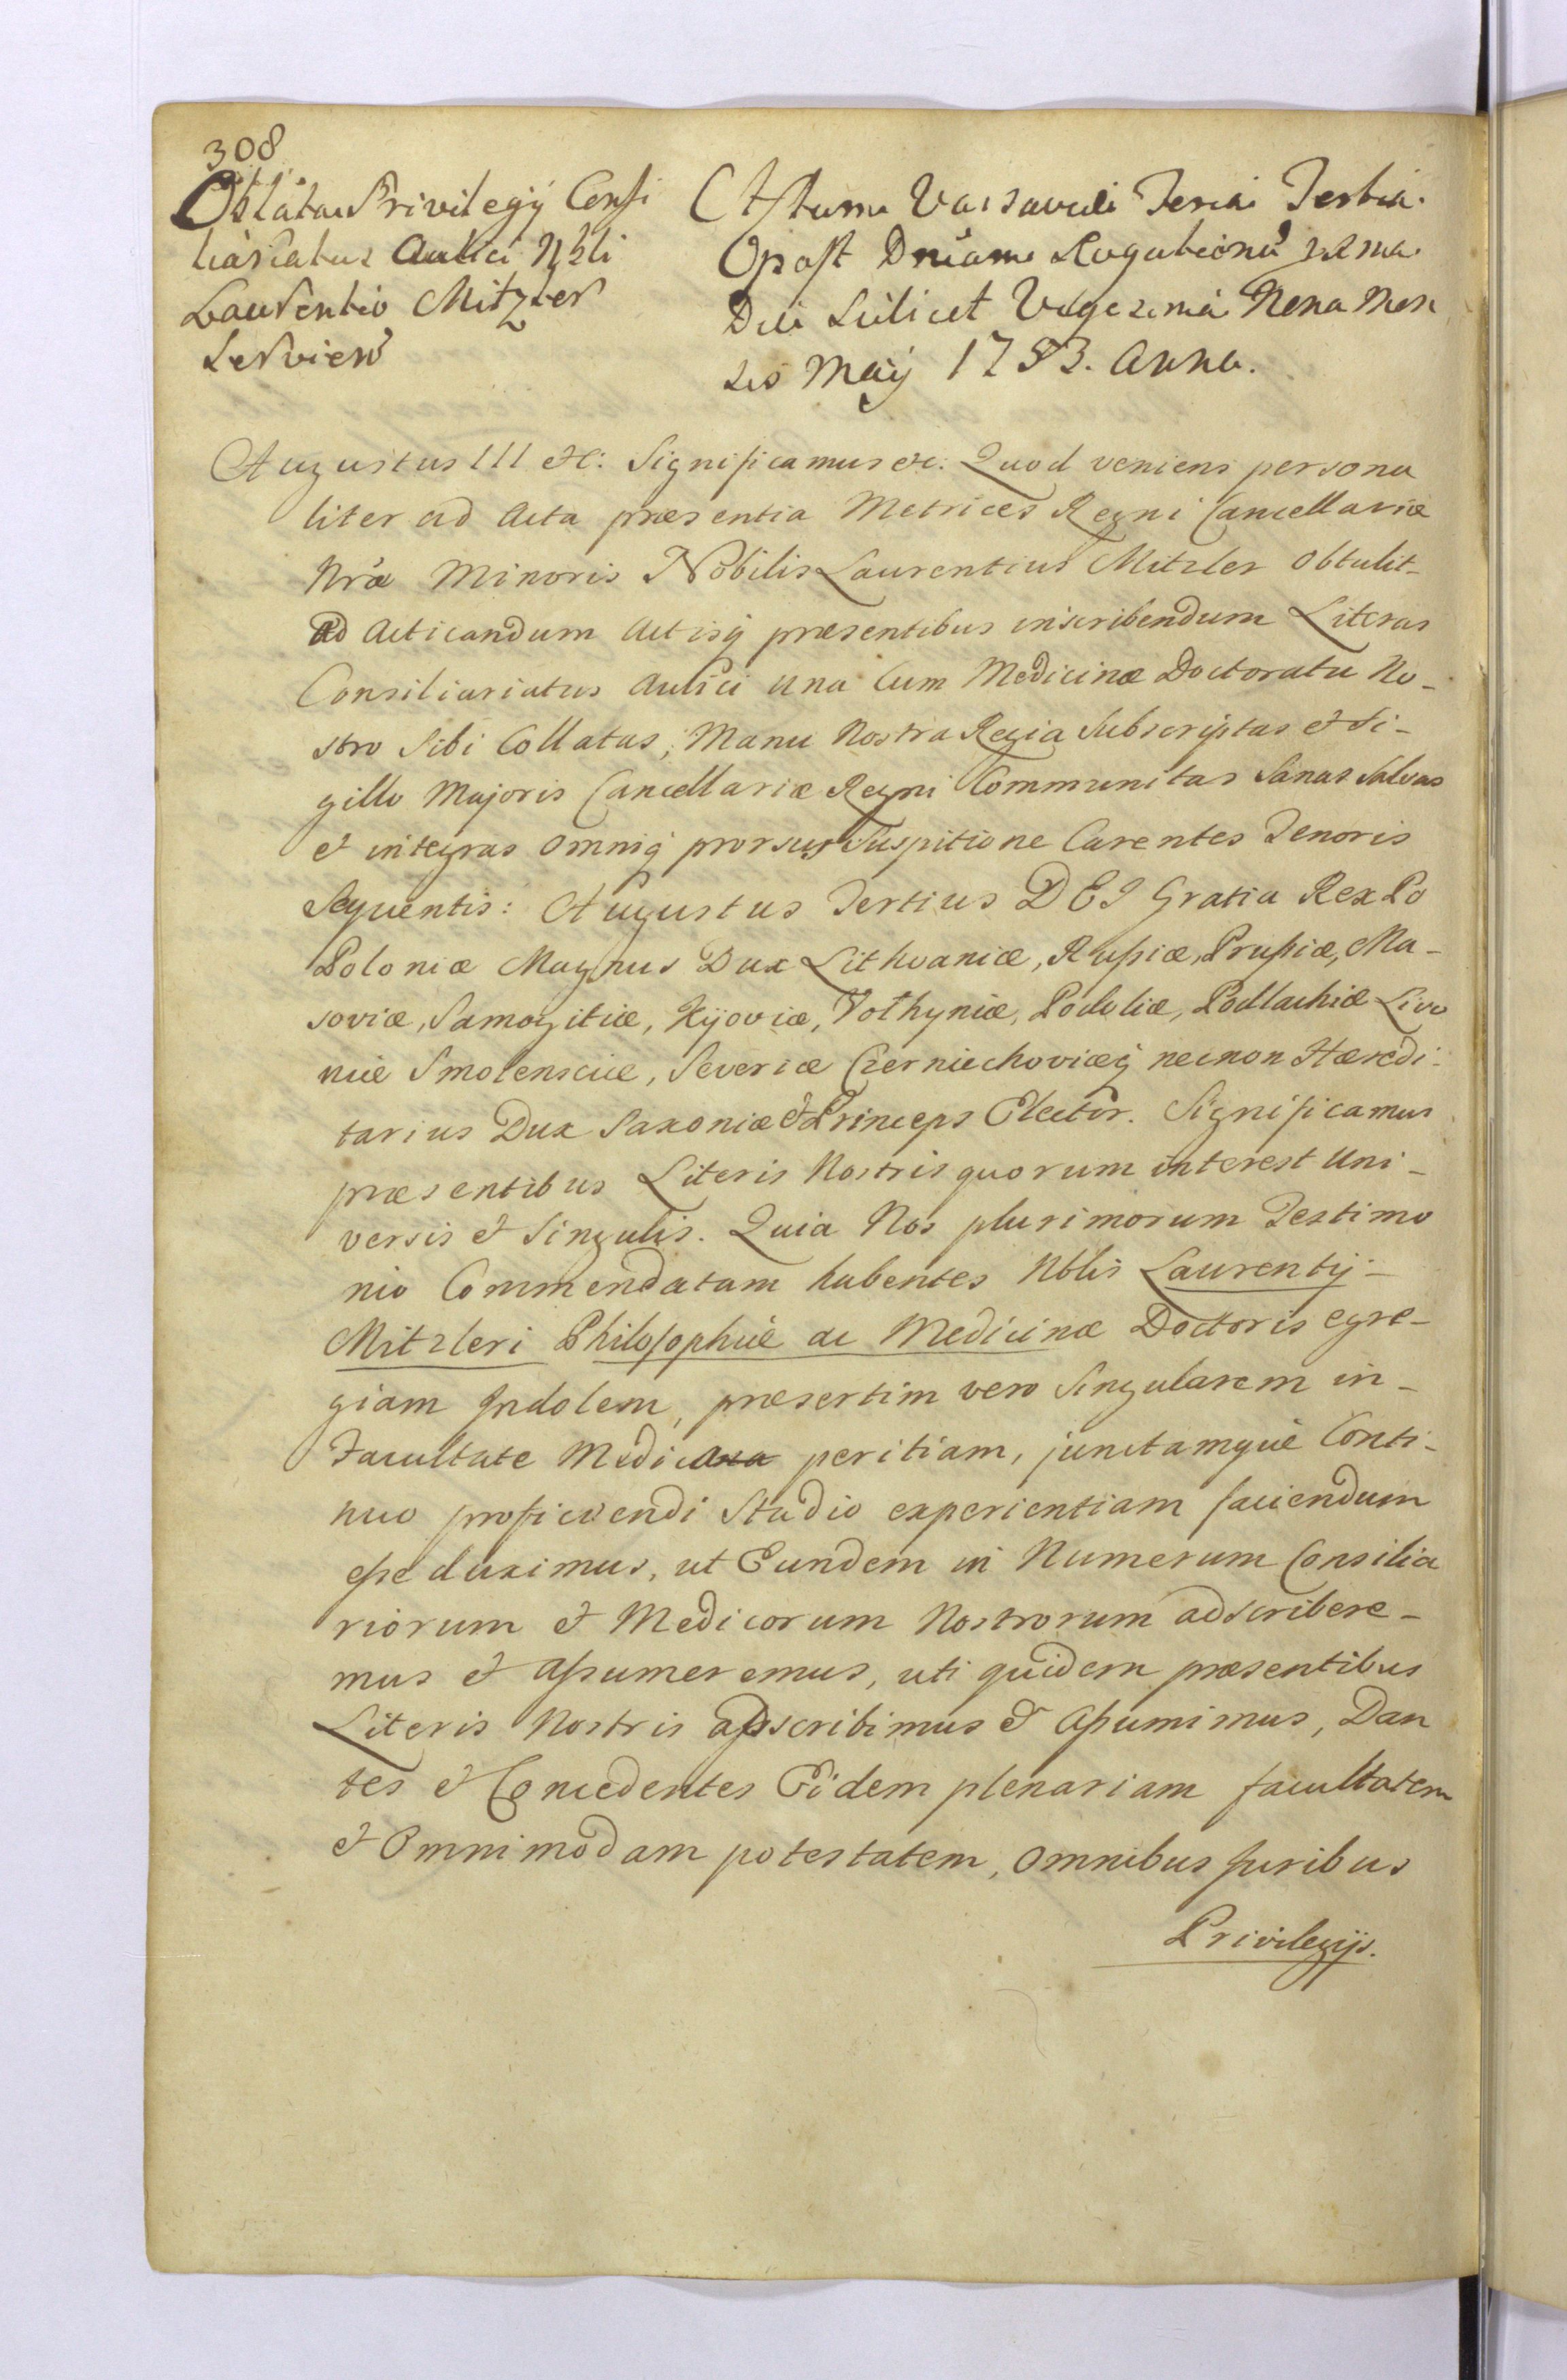 308
Oblata Privilegij Consi
liariatus Aulici Nbli
Laurentio Mitzler
Servien̄
Actum Varsaviæ Feria Tertia
post Dnicam Rogationū
Die Scilicet Vigesima Nona Men
sis Maij 1753. Anno.
Augustus III etc: Significamus etc. Quod veniens persona
liter ad Acta præsentia Metrices Regni Cancellariæ
Nræ Minoris Nobilis Laurentius Mitzler obtulit
ad Acticandum Actisq præsentibus inscribendum Literas
Consiliariatus Aulici una Cum Medicinæ Doctoratu No-
stro Sibi Collatas, Manu Nostra Regia Subscriptas et Si-
gillo Majoris Cancellariæ Regni Communitas Sanas Salvas
et integras omniq prorsus Suspitione Carentes Tenoris
Sequentis: Augustus Tertius DEI Gratia Rex Po
Poloniæ Magnus Dux Lithvaniæ, Russiæ, Prussiæ, Ma-
soviæ, Samogitiæ, Kijoviæ, Volhyniæ, Podoliæ, Podlachiæ Livo
niæ Smolensciæ, Severiæ Czerniechoviæq necnon Hæredi-
tarius Dux Saxoniæ & Princeps Elector. Significamus
præsentibus Literis Nostris quorum interest Uni-
versis et Singulis. Quia Nos plurimorum Testimo
nio Commendatam habentes Nblis Laurentij
Mitzleri Philosophiæ ac Medicinæ Doctoris egre-
giam Indolem, præsertim vero Singularem in-
Facultate Medica peritiam, junctamque Conti-
nuo proficiendi Studio experientiam faciendum
esse duximus, ut Eundem in Numerum Consilia
riorum et Medicorum Nostrorum adscribere-
mus et assumeremus, uti quidem præsentibus
Literis Nostris adscribimus et assumimus, Dan
tes et Concedentes Eidem plenariam facultatem
et omnimodam potestatem, omnibus Juribus
Privilegijs.